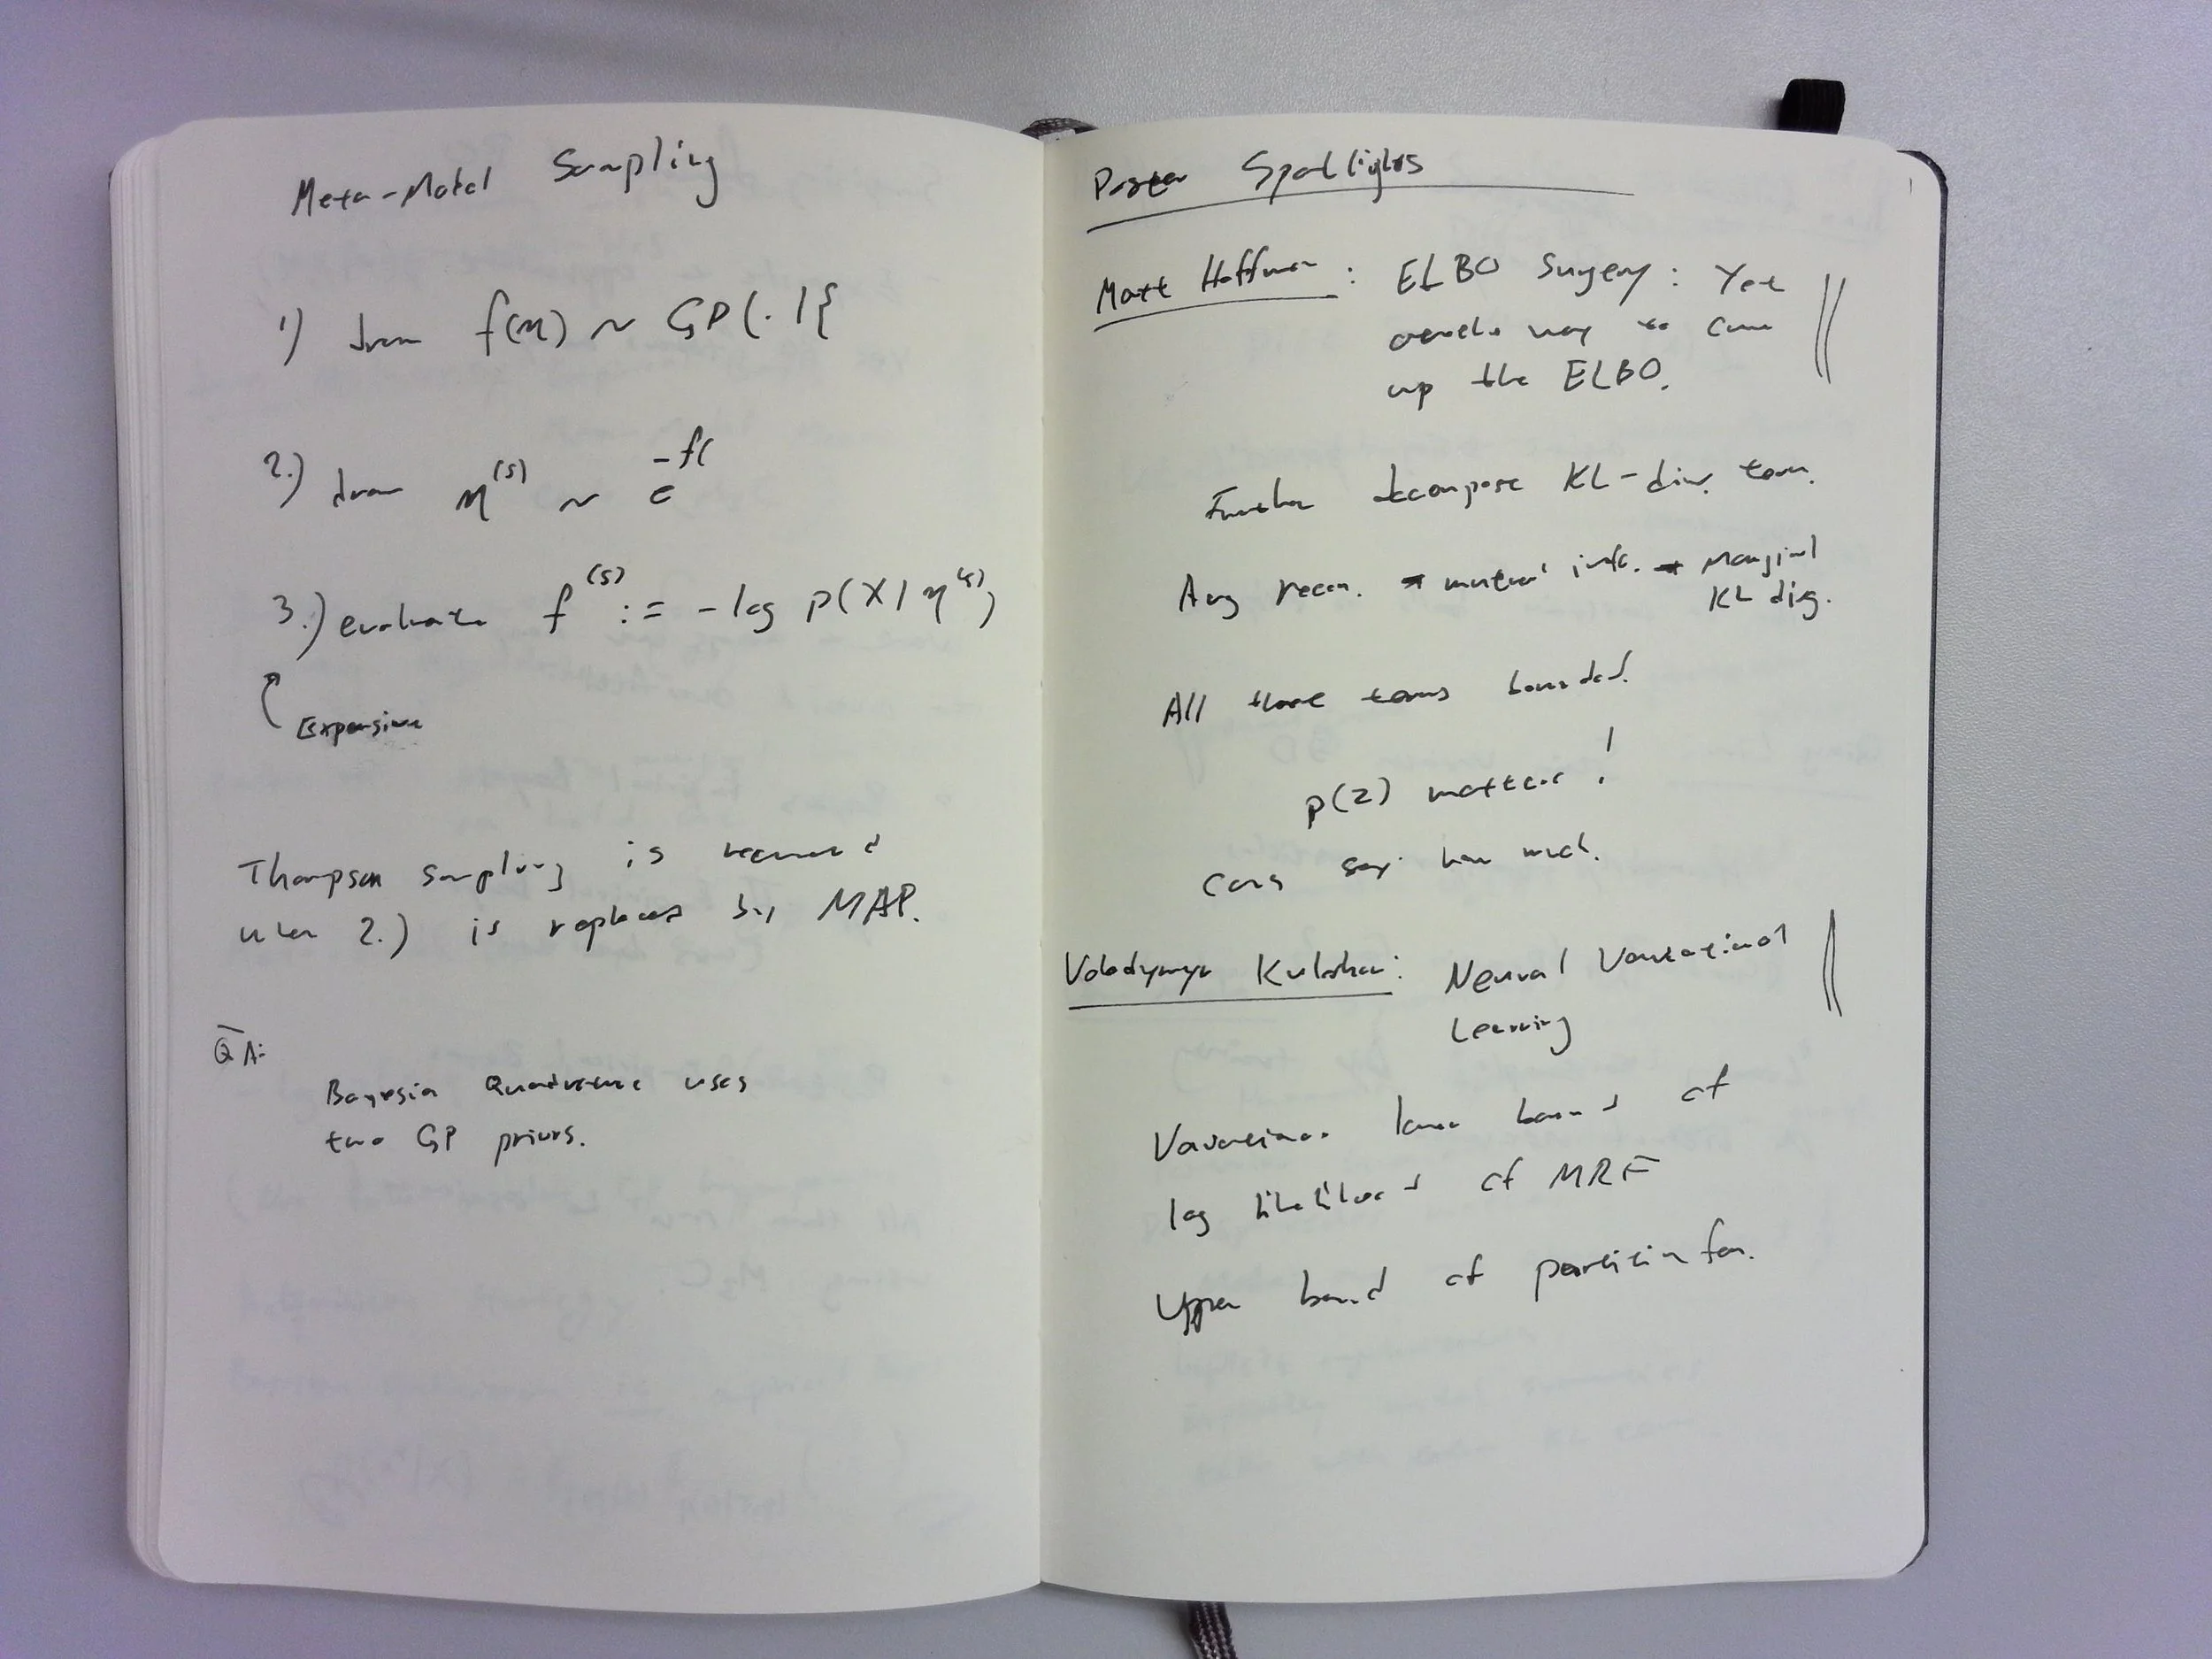 Meta-Model Sampling
1) draw f(η) ~ GP(·|{
2.) draw η^(s) ~ e^-f(
3.) evaluate f^(s) := -log p(X|η^(s))
Expensive
Thompson sampling is recovered
when 2.) is replaced by MAP.
QA:
Bayesian Quadrature uses
two GP priors.
Poster Spotlights
Matt Hoffman: ELBO Surgery: Yet
another way to carve
up the ELBO.
Further decompose KL-div. term.
Avg recon. mutual info. → Marginal
KL div.
All three terms bounded!
p(z) matters!
say how much.
Volodymyr Kuleshov: Neural Variational
Learning
Variational lower bound of
log likelihood of MRF
Upper bound of partition fcn.